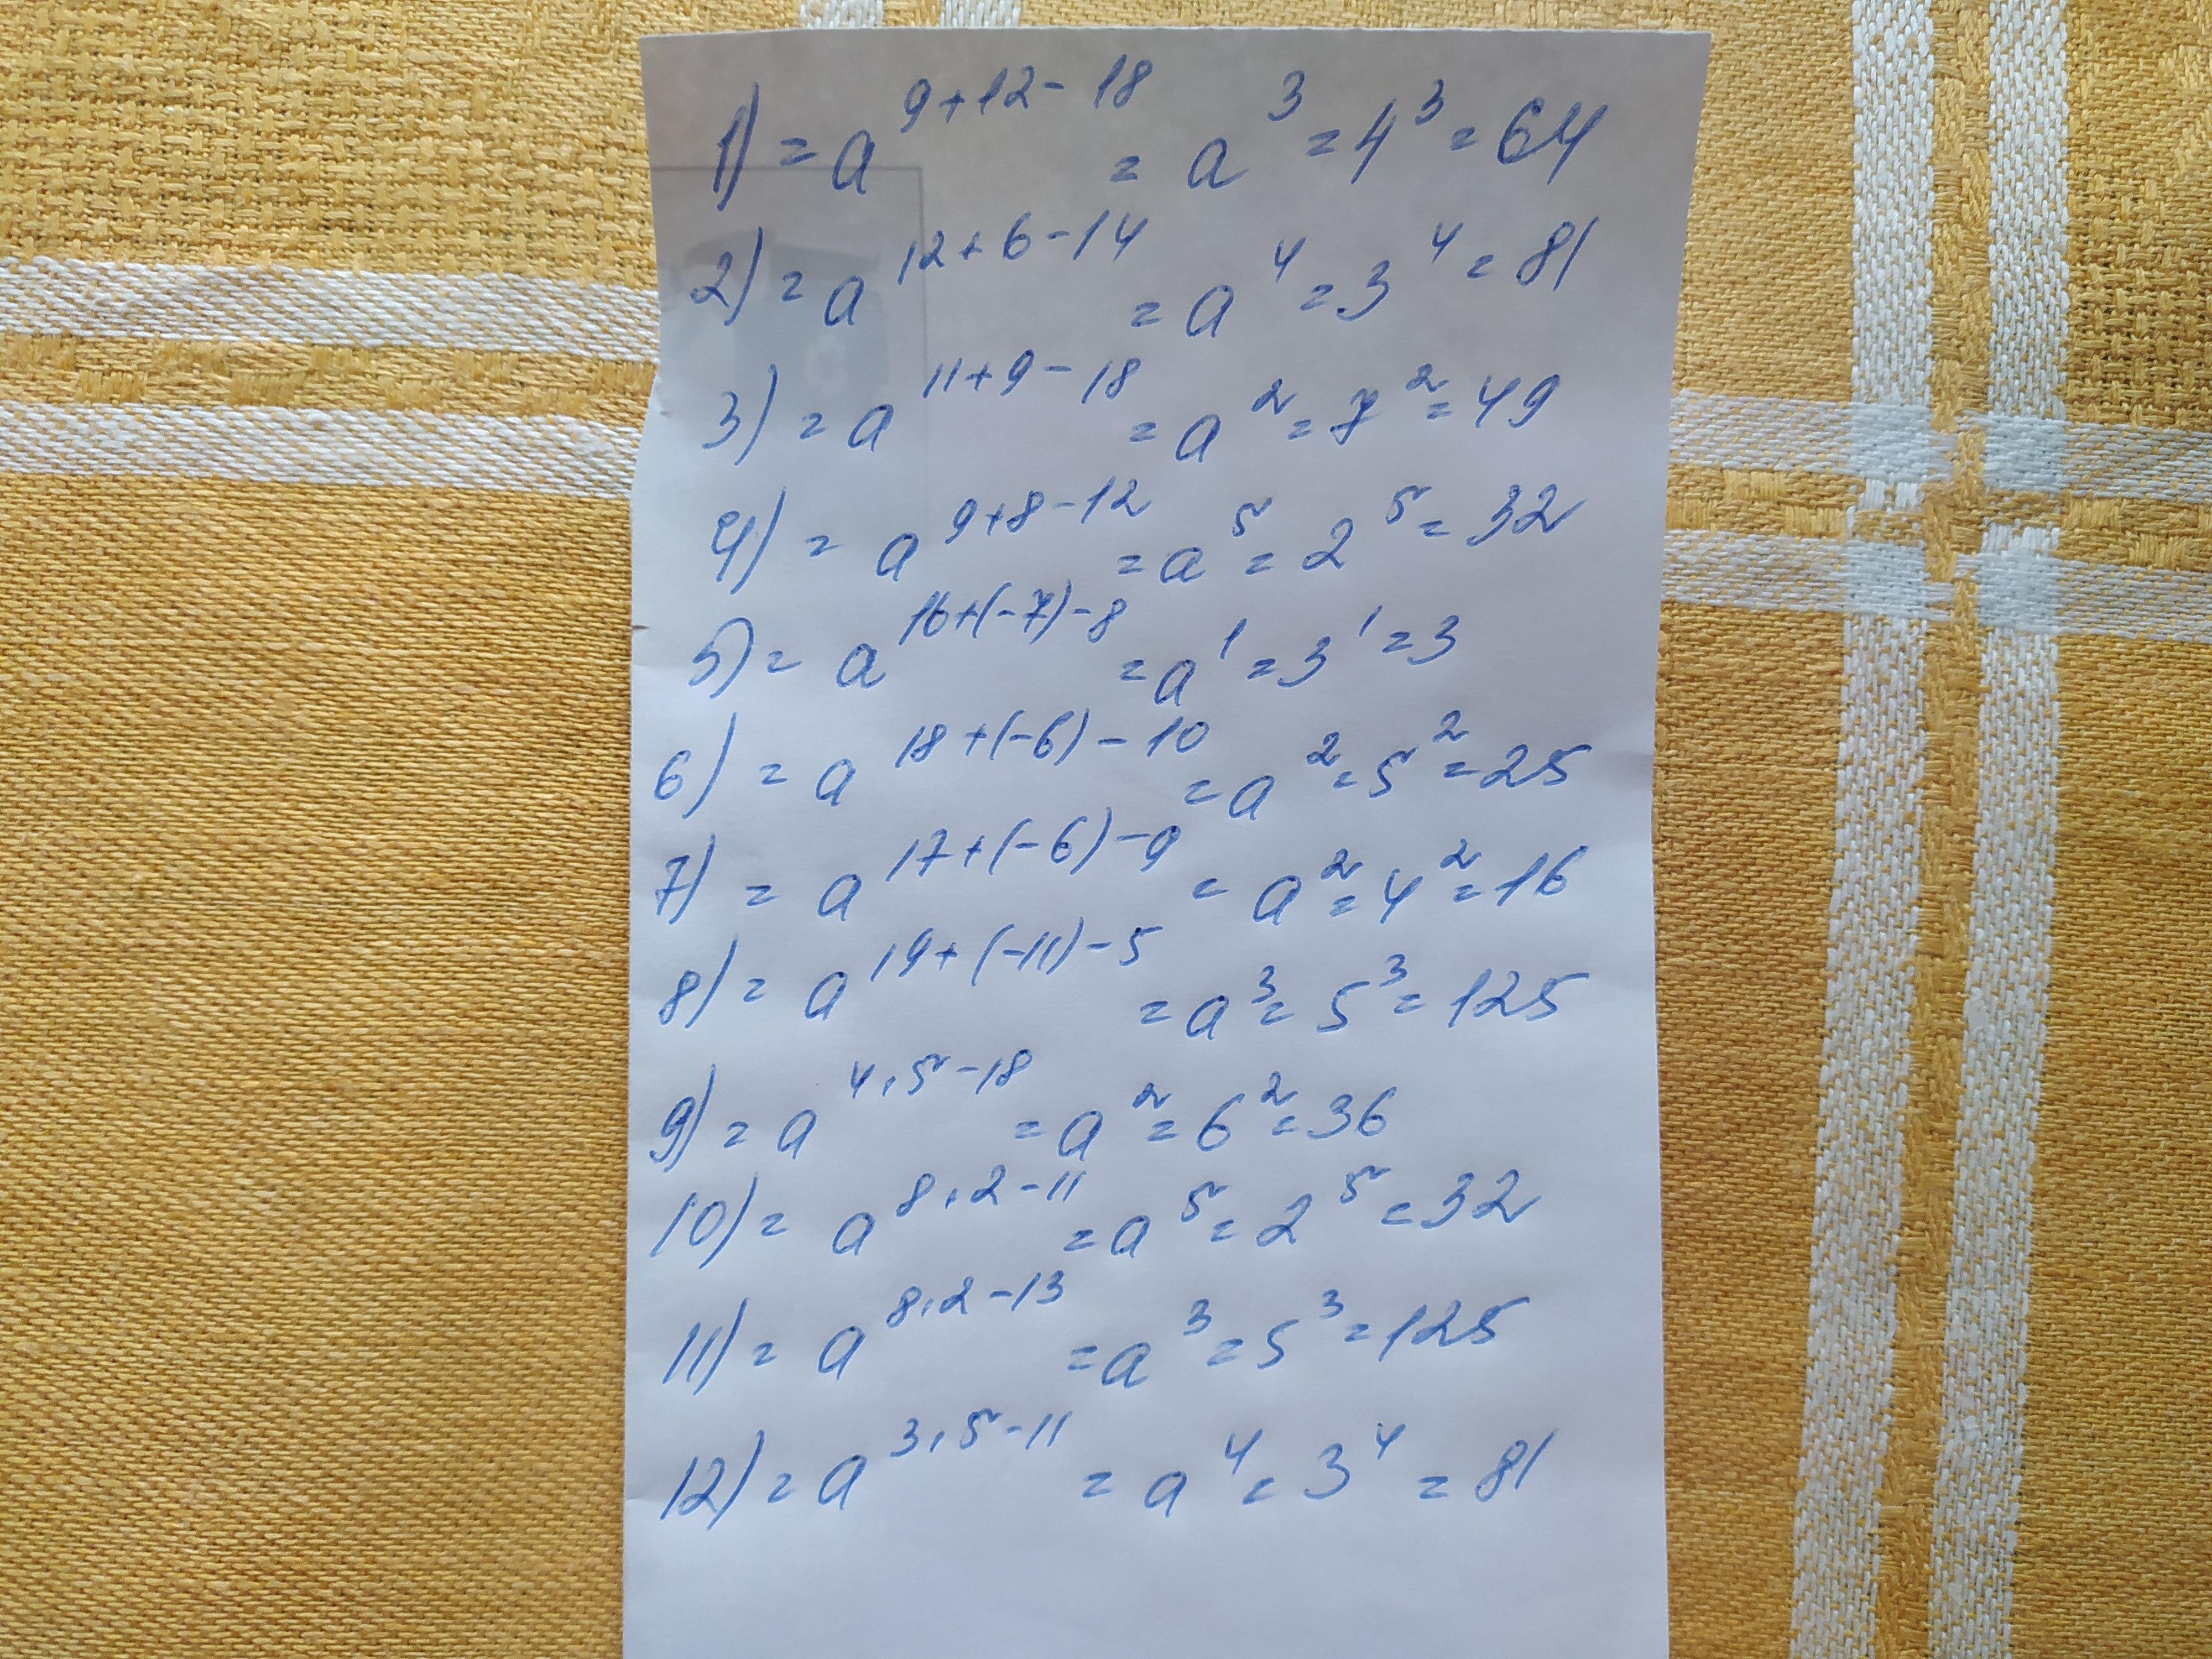 1) = a^{9+12-18} = a^3 = 4^3 = 64
2) = a^{12+6-14} = a^4 = 3^4 = 81
3) = a^{11+9-18} = a^2 = 7^2 = 49
4) = a^{9+8-12} = a^5 = 2^5 = 32
5) = a^{16+(-7)-8} = a^1 = 3^1 = 3
6) = a^{18+(-6)-10} = a^2 = 5^2 = 25
7) = a^{17+(-6)-9} = a^2 = 4^2 = 16
8) = a^{19+(-11)-5} = a^3 = 5^3 = 125
9) = a^{4·5-18} = a^2 = 6^2 = 36
10) = a^{8·2-11} = a^5 = 2^5 = 32
11) = a^{8·2-13} = a^3 = 5^3 = 125
12) = a^{3·5-11} = a^4 = 3^4 = 81